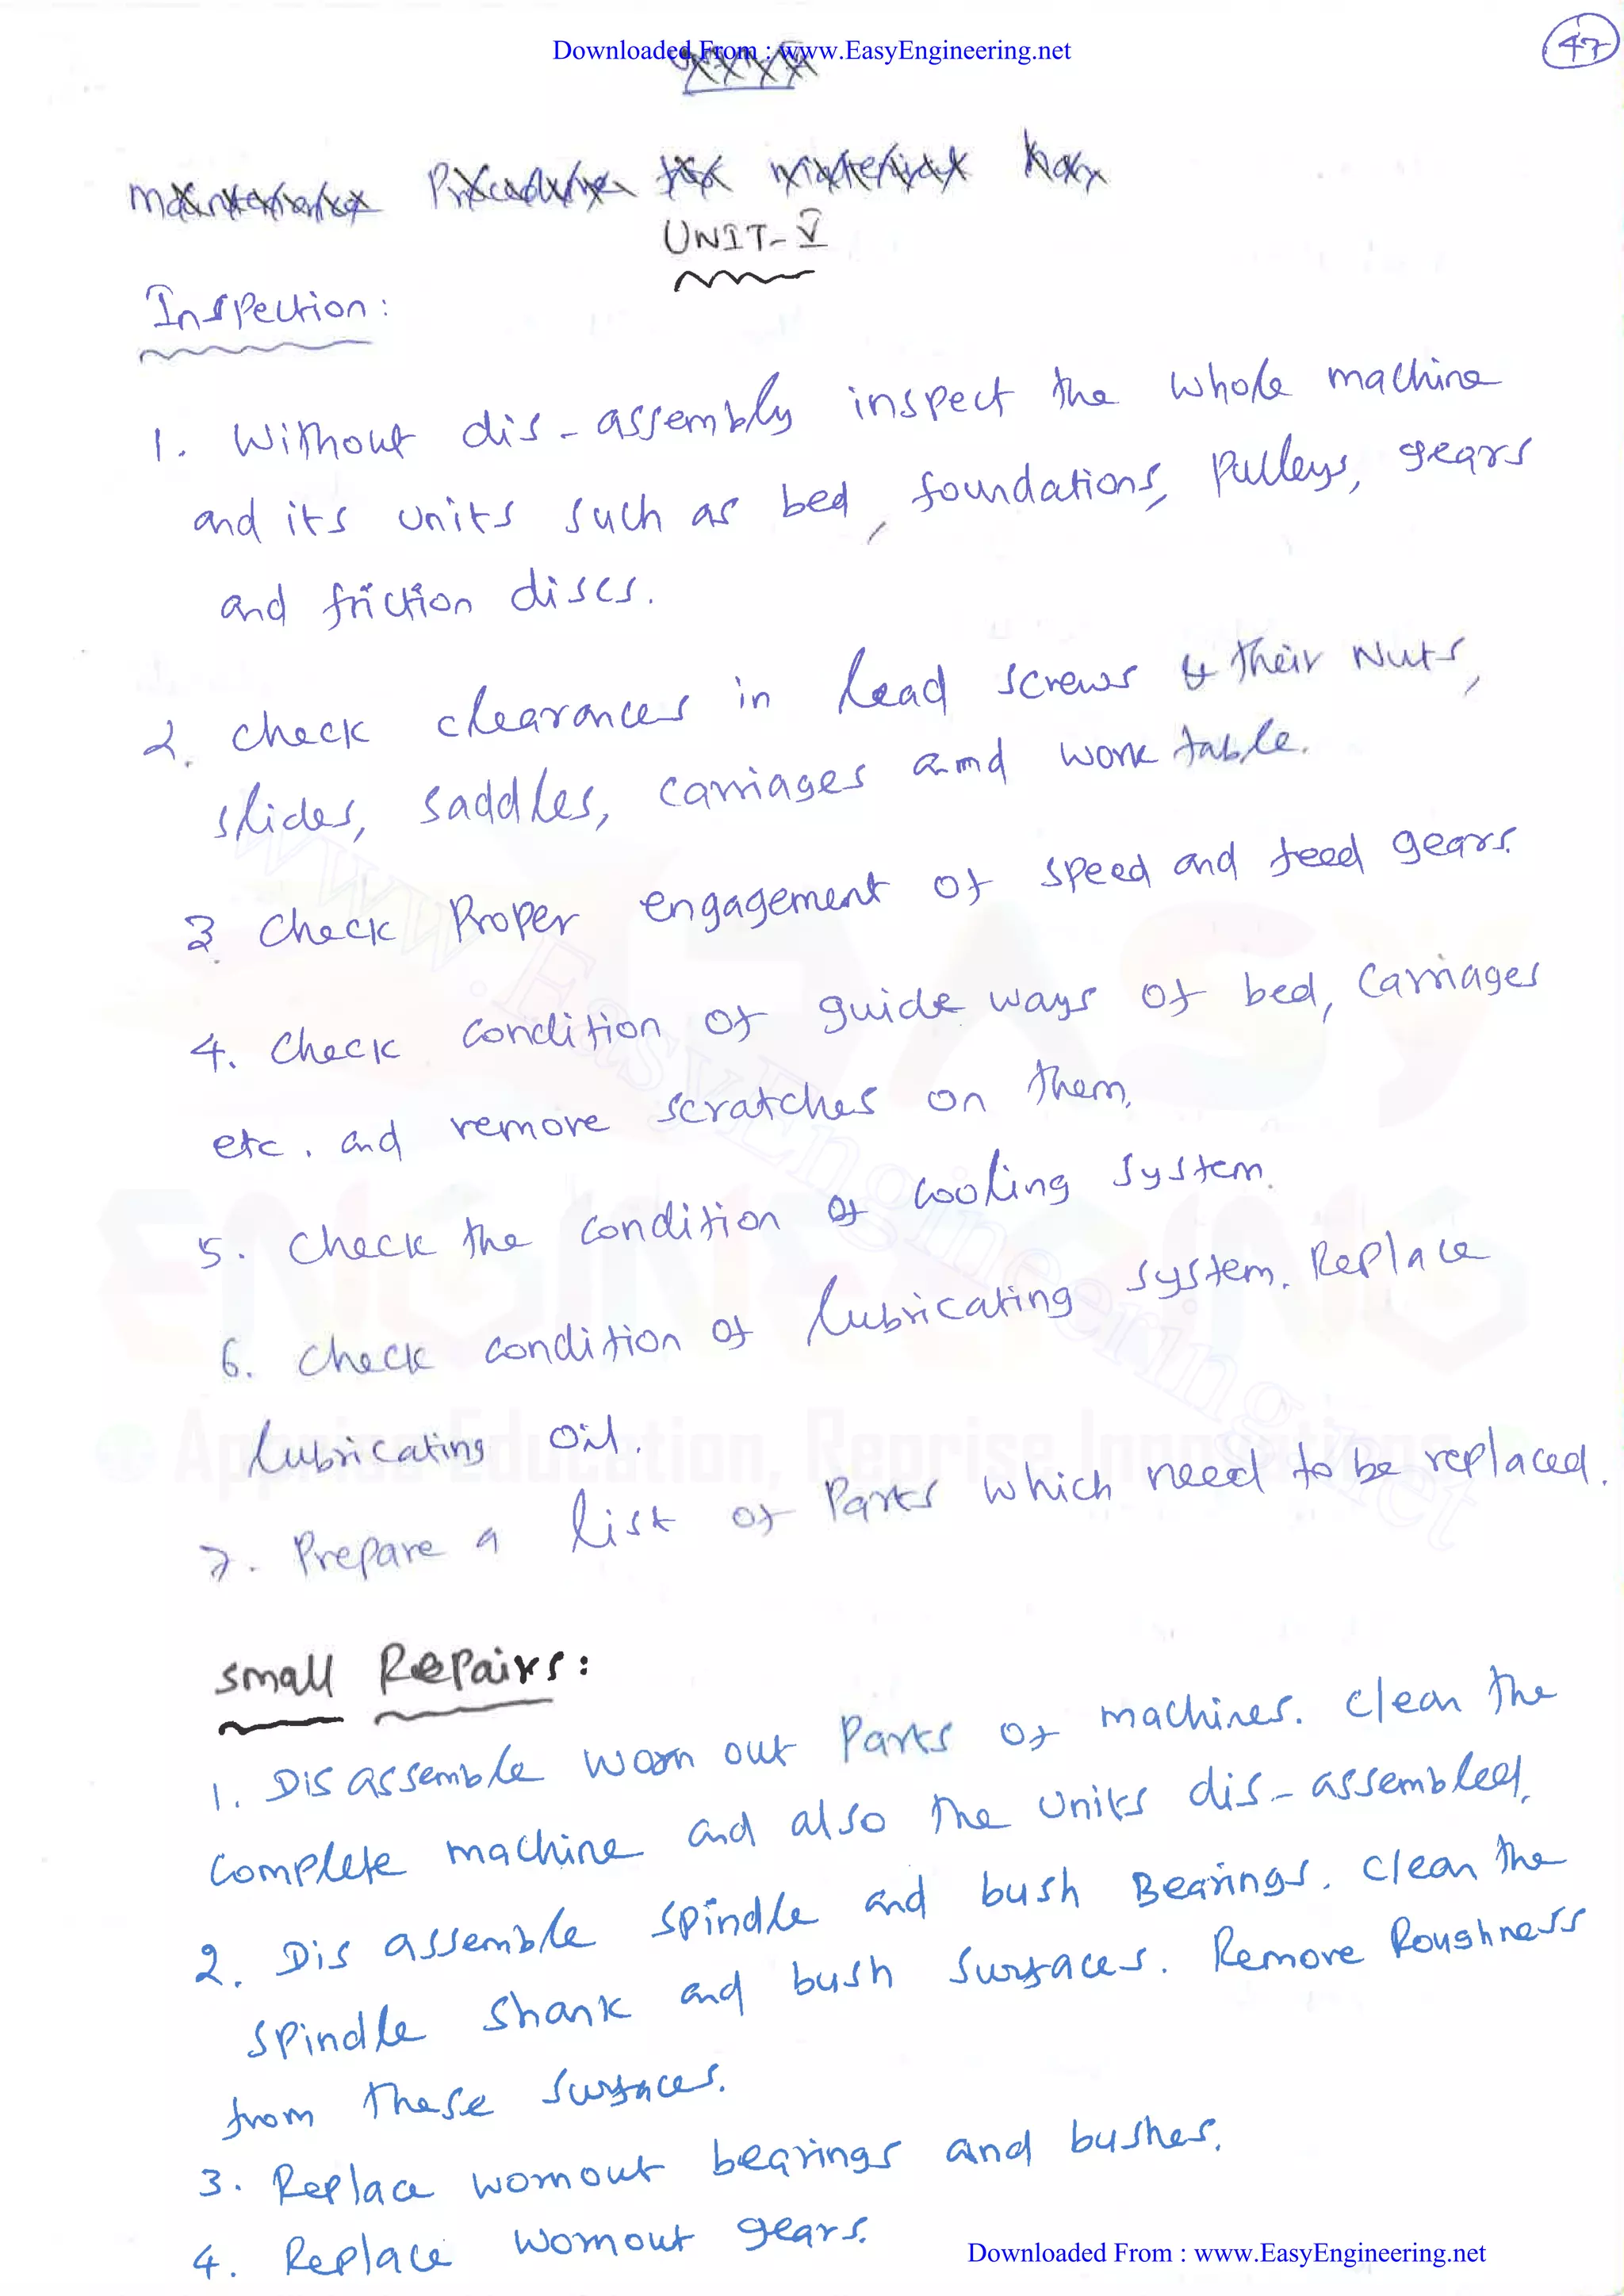 Downloaded From : www.EasyEngineering.net
47
UNIT-V
Inspection :
1. Without dis-assembly inspect the whole machine
and its units such as bed, foundations, pulleys, gears
and friction discs.
2. check clearances in lead screws & their Nuts,
slides, saddles, carriages and work table.
3. check Proper engagement of speed and feed gears.
4. check condition of guide ways of bed, carriages
etc. and remove scratches on them.
5. check the condition of cooling system.
6. check condition of lubricating system. Replace
lubricating oil.
7. Prepare a list of Parts which need to be replaced.
small Repairs :
1. Disassemble worn out Parts of machines. clean the
complete machine and also the units dis-assembled.
2. Dis assemble spindle and bush Bearings. clean the
spindle shank and bush surfaces. Remove Roughness
from these surfaces.
3. Replace wornout bearings and bushes.
4. Replace wornout gears.
Downloaded From : www.EasyEngineering.net
www.EasyEngineering.net
EASY
ENGINEERING